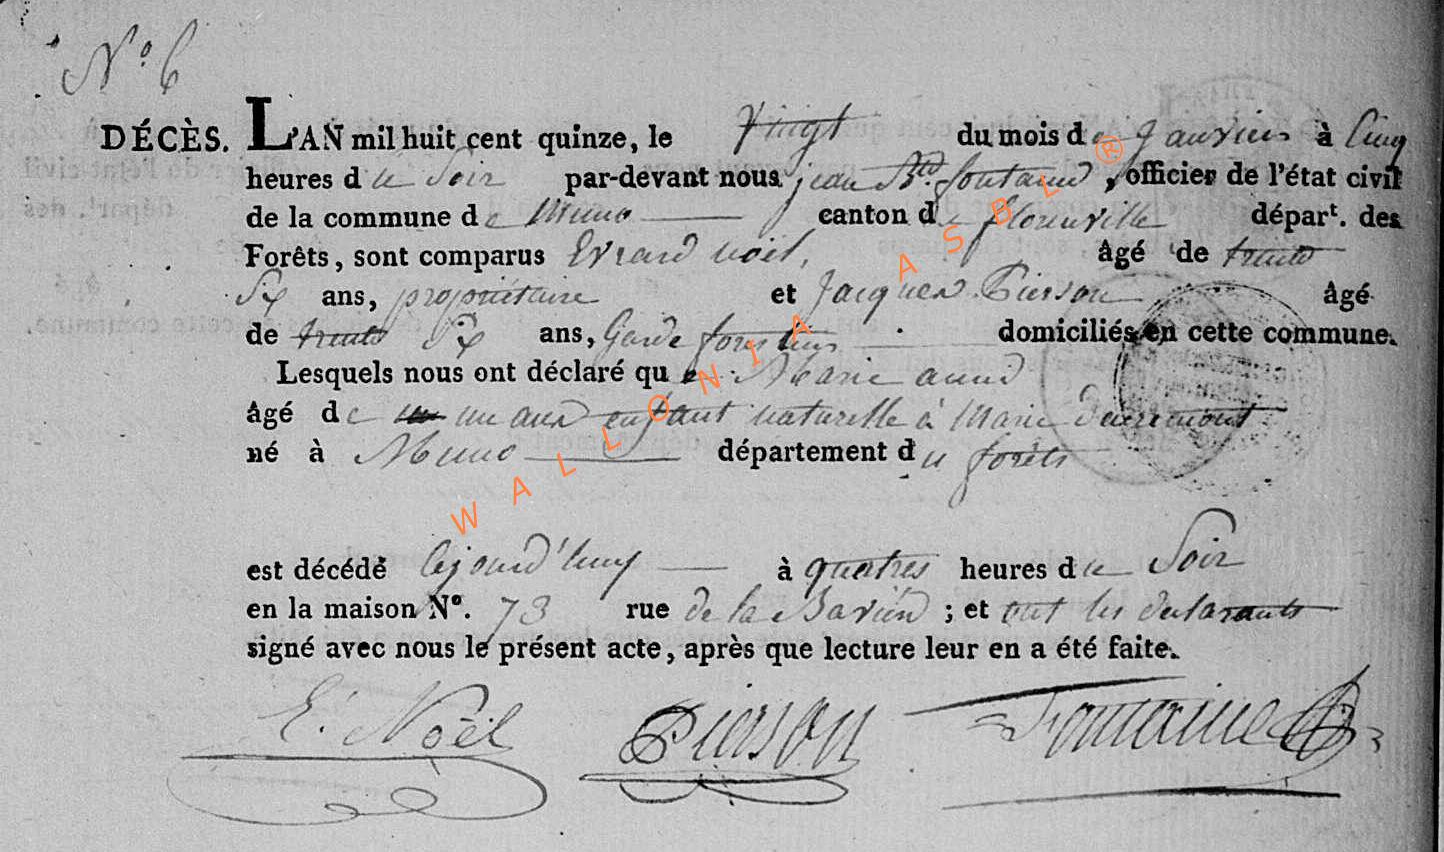 N.o 6
DÉCÈS. L'AN mil huit cent quinze, le vingt du mois de janvier à Cinq
heures du Soir par-devant nous jean Bte fontaine, officier de l'état civil
de la commune de Muno canton de florenville départ. des
Forêts, sont comparus Evrard noël, âgé de trente
Six ans, propriétaire et Jacques Pierson âgé
de trente Six ans, Garde forestier domiciliés en cette commune.
Lesquels nous ont déclaré que Marie anne
âgé de un ans enfant naturelle à Marie
né à Muno département du forêts
est décédé à quatres heures du Soir
en la maison N°. 73 rue de la ; et ont les declarants
signé avec nous le présent acte, après que lecture leur en a été faite.
E. Noël Pierson Fontaine
WALLONIA ASBL ®